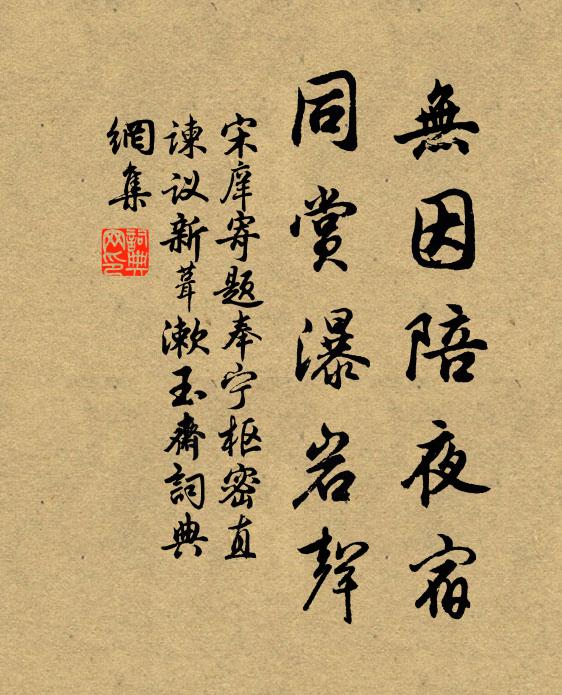 無因陪夜宿
同賞瀑岩聲
宋庠寄题奉宁枢密直
谏议新葺漱玉齋詞典
網集
詞典网印